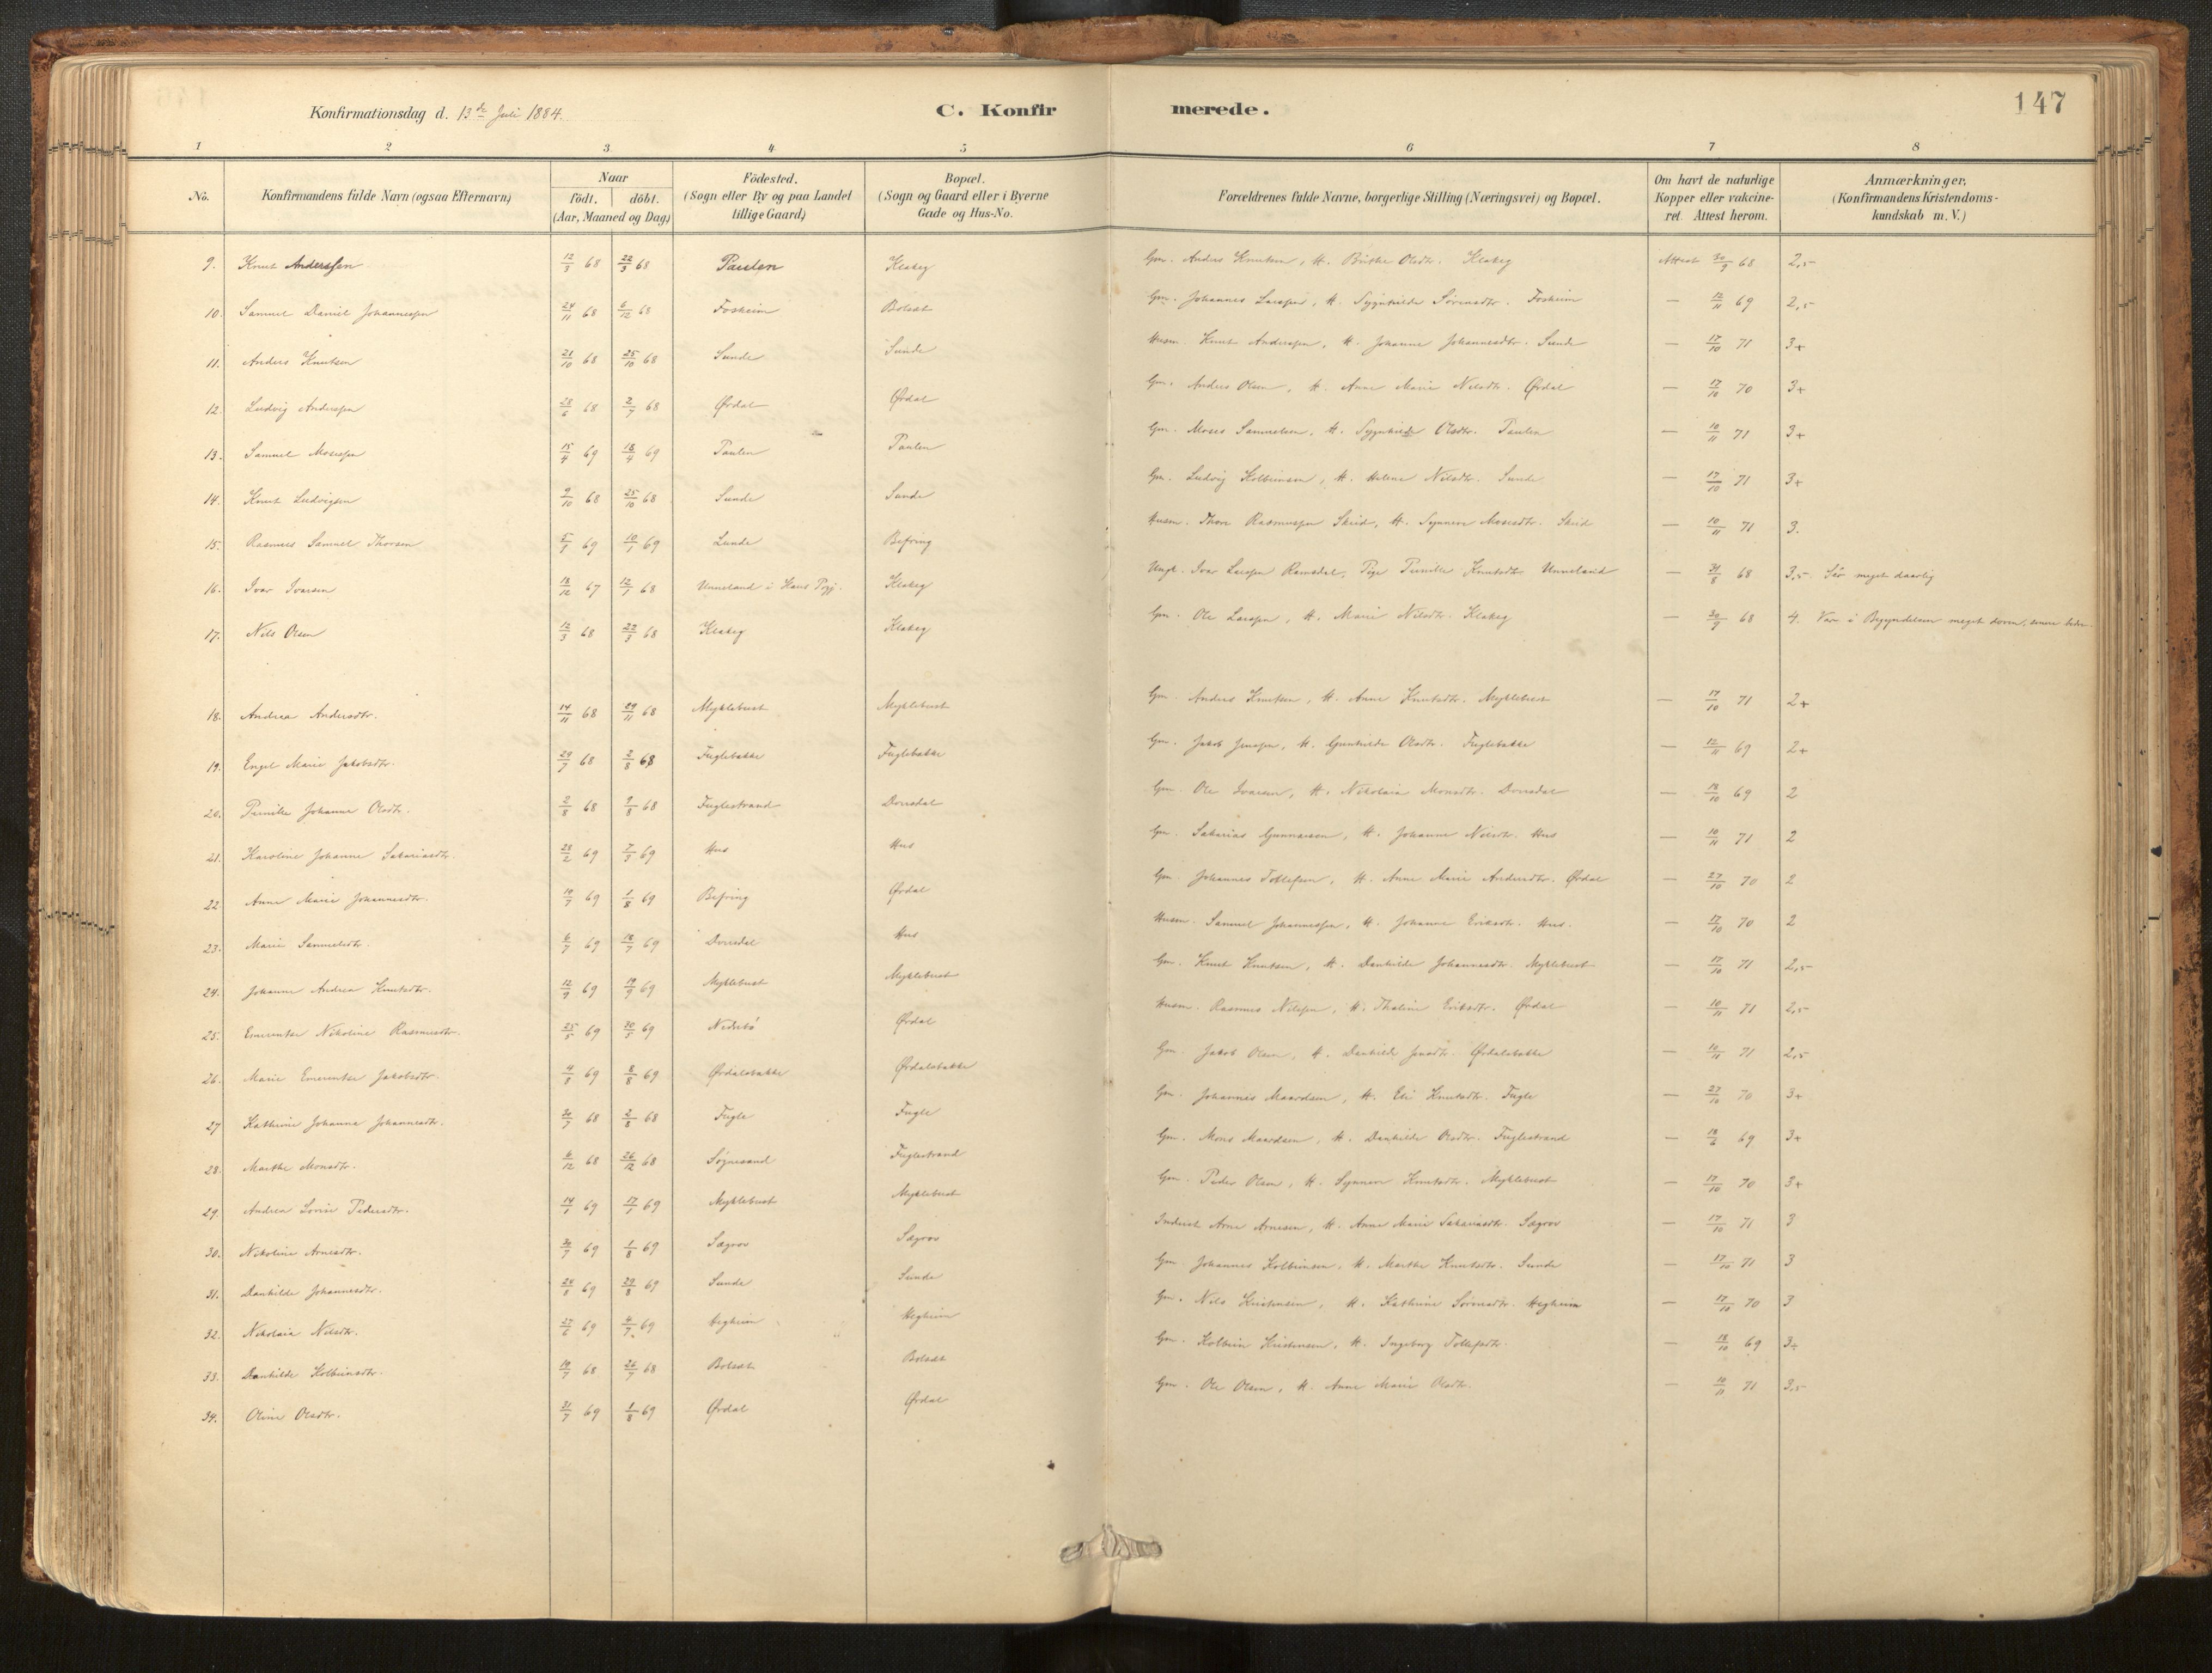 147
Konfirmationsdag d. 13de Juli 1884.
C. Konfirmerede.
1 2 3 4 5 6 7 8
No. Konfirmandens fulde Navn (ogsaa Efternavn) Naar födt, döbt. (Aar, Maaned og Dag) Födested. (Sogn eller By og paa Landet tillige Gaard) Bopæl. (Sogn og Gaard eller i Byerne Gade og Hus-No. Forældrenes fulde Navne, borgerlige Stilling (Næringsvei) og Bopæl. Om havt de naturlige Kopper eller vakcineret. Attest herom. Anmærkninger. (Konfirmandens Kristendomskundskab m. V.)
9. Knut Anderssen 12/3 68 22/3 68 Paulen Klakeg Gm. Anders Knutsen, H. Brithe Olsdtr. Klakeg Attest 30/9 68 2,5
10. Samuel Daniel Johannessen 24/11 68 6/12 68 Foskeim Bolsæt Gm. Johannes Larssen, H. Sygnhilde Sørensdtr. Foskeim — 12/11 69 2,5
11. Anders Knutsen 21/10 68 25/10 68 Sunde Sunde Husm. Knut Anderssen, H. Johanne Johannesdtr. Sunde — 17/10 71 3+
12. Ludvig Anderssen 28/6 68 2/7 68 Ørdal Ørdal Gm. Anders Olsen, H. Anne Marie Nilsdtr. Ørdal — 17/10 70 3+
13. Samuel Mosessen 15/4 69 18/4 69 Paulen Paulen Gm. Moses Samuelsen, H. Sygnhilde Olsdtr. Paulen — 10/11 71 3+
14. Knut Ludvigsen 9/10 68 25/10 68 Sunde Sunde Gm. Ludvig Kolbeinsen, H. Helene Nilsdtr. Sunde — 17/10 71 3+
15. Rasmus Samuel Thorsen 5/1 69 10/1 69 Lunde Befring Husm. Thore Rasmussen Skrid, H. Synneve Mosesdtr. Skrid — 10/11 71 3.
16. Ivar Ivarsen 18/12 67 12/1 68 Unneland i Haus Prgj. Klakeg Ungk. Ivar Larssen Ramsdal, Pige Pernille Knutsdtr. Unneland — 31/8 68 3,5 Sér meget daarlig
17. Nils Olsen 12/3 68 22/3 68 Klakeg Klakeg Gm. Ole Larssen, H. Marie Nilsdtr. Klakeg — 30/9 68 4. Var i Begyndelsen meget doven, senere bedre.
18. Andrea Andersdtr. 14/11 68 29/11 68 Myklebust Myklebust Gm. Anders Knutsen, H. Anne Knutsdtr. Myklebust — 17/10 71 2+
19. Engel Marie Jakobsdtr. 29/7 68 2/8 68 Fuglebakke Fuglebakke Gm. Jakob Jenssen, H. Gunhilde Olsdtr. Fuglebakke — 12/11 69 2+
20. Pernille Johanne Olsdtr. 2/8 68 9/8 68 Fuglestrand Dvergsdal Gm. Ole Ivarsen, H. Nikolaia Monsdtr. — 18/10 69 2
21. Karoline Johanne Sakariasdtr. 28/2 69 7/3 69 Hus Hus Gm. Sakarias Gunnarsen, H. Johanne Nilsdtr. Hus — 10/11 71 2
22. Anne Marie Johannesdtr. 19/7 69 1/8 69 Befring Ørdal Gm. Johannes Tollefsen, H. Anne Marie Andersdtr. Ørdal — 27/10 70 2
23. Marie Samuelsdtr. 6/7 69 18/7 69 Hus Husm. Samuel Johannessen, H. Johanne Eriksdtr. Hus. — 17/10 70 2
24. Johanne Andrea Knutsdtr. 12/9 69 19/9 69 Myklebust Myklebust Gm. Knut Knutsen, H. Danhilde Johannesdtr. Myklebust — 17/10 71 2,5
25. Emerentse Nikoline Rasmusdtr. 25/5 69 30/5 69 Nedrebö Ørdal Husm. Rasmus Nilssen, H. Thaline Eriksdtr. Ørdal — 10/11 71 2,5
26. Marie Emerentse Jakobsdtr. 4/8 69 8/8 69 Ørdalsbakke Ørdalsbakke Gm. Jakob Olsen, H. Danhilde Jensdtr. Ørdalsbakke — 10/11 71 2,5
27 Kathrine Johanna Johannesdtr. 30/7 68 2/8 68 Fugle Fugle Gm. Johannes Maardsen, H. Eli Knutsdtr. Fugle — 27/10 70 3+
28. Marthe Monsdtr. 6/12 68 26/12 68 Søgnesand Fuglestrand Gm. Mons Maardsen, H. Danhilde Olsdtr. Fuglestrand — 18/6 69 3+
29. Andrea Lovise Pedersdtr. 14/1 69 17/1 69 Myklebust Myklebust Gm. Peder Olsen, H. Synneve Knutsdtr. Myklebust — 17/10 70 3+
30. Nikoline Arnesdtr. 30/7 69 1/8 69 Sægrov Sægrov Inderst Arne Arnesen, H. Anne Marie Sakariasdtr. Sægrov — 17/10 71 3
31. Danhilde Johannesdtr. 24/8 69 29/8 69 Sunde Sunde Gm. Johannes Kolbeinsen, H. Marthe Knutsdtr. Sunde — 17/10 71 3
32. Nikolaia Nilsdtr. 27/6 69 4/7 69 Hegheim Hegheim Gm. Nils Kristensen, H. Kathrine Sørensdtr. Hegheim — 17/10 70 3
33. Danhilde Kolbeinsdtr. 19/7 68 26/7 68 Bolsæt Bolsæt Gm. Kolbein Kristensen, H. Ingeborg Tollefsdtr. — 18/10 69 3+
34. Oline Olsdtr. 31/7 69 1/8 69 Ørdal Ørdal Gm. Ole Olsen, H. Anne Marie Olsdtr. — 10/11 71 3,5